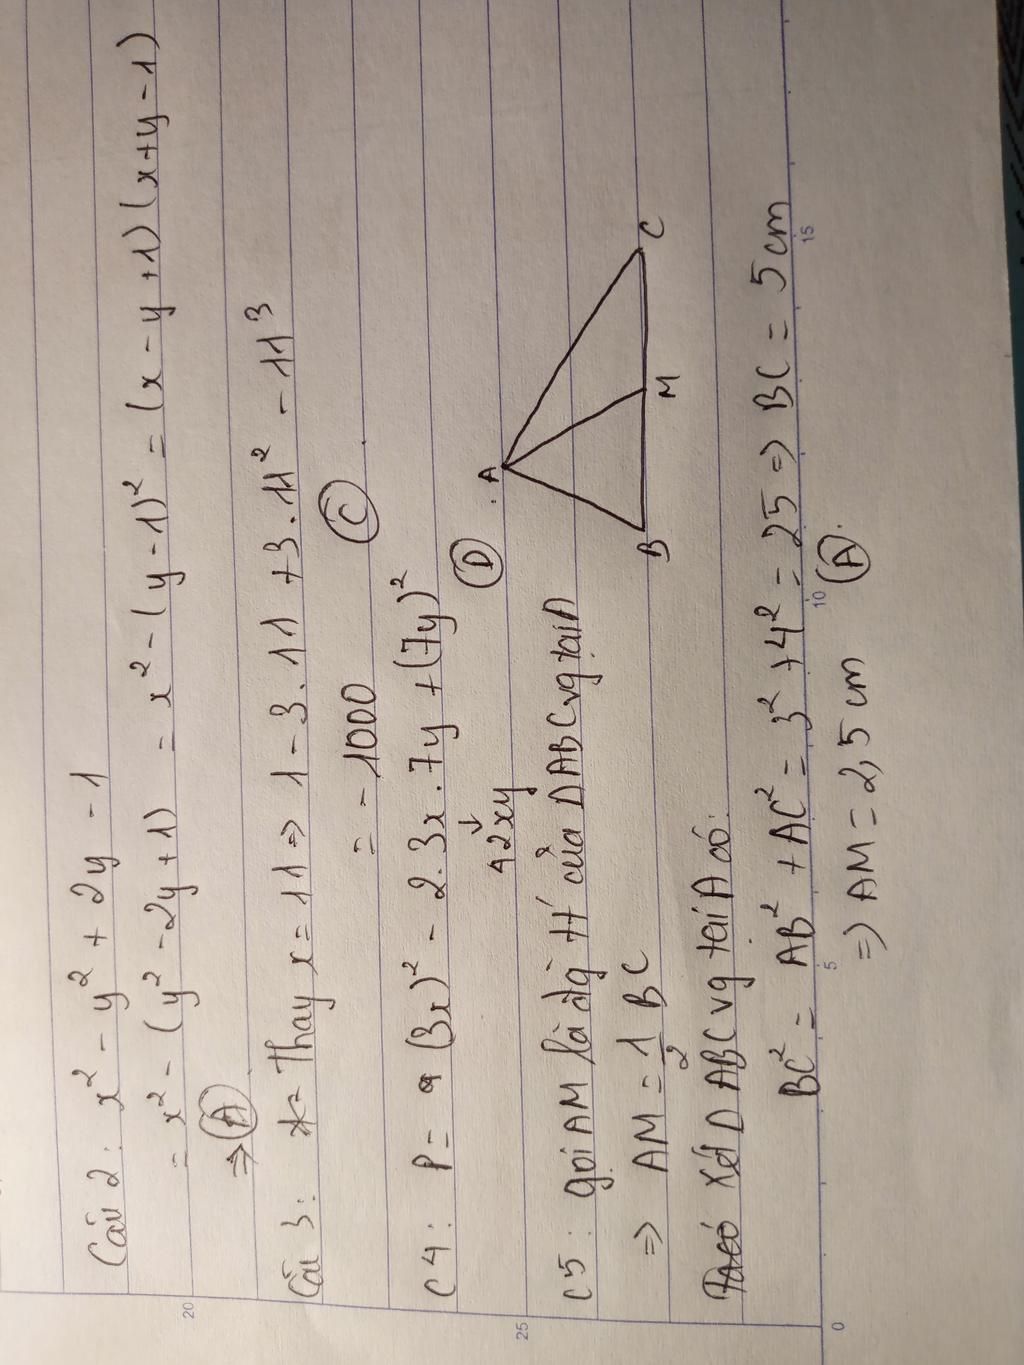 Câu 2: x² - y² + 2y - 1
= x² - (y² - 2y + 1) = x² - (y - 1)² = (x - y + 1)(x + y - 1)
⇒ A
Câu 3: Thay x = 11 ⇒ 1 - 3.11 + 3.11² - 11³
= -1000 C
C4: P = (3x)² - 2.3x.7y + (7y)²
↓
42xy D
C5: gọi AM là đg tt' của ΔABC vg tại A
⇒ AM = 1/2 BC
A
B M C
Xét ΔABC vg tại A có:
BC² = AB² + AC² = 3² + 4² = 25 ⇒ BC = 5cm
⇒ AM = 2,5 cm A.
20
25
0 5 10 15